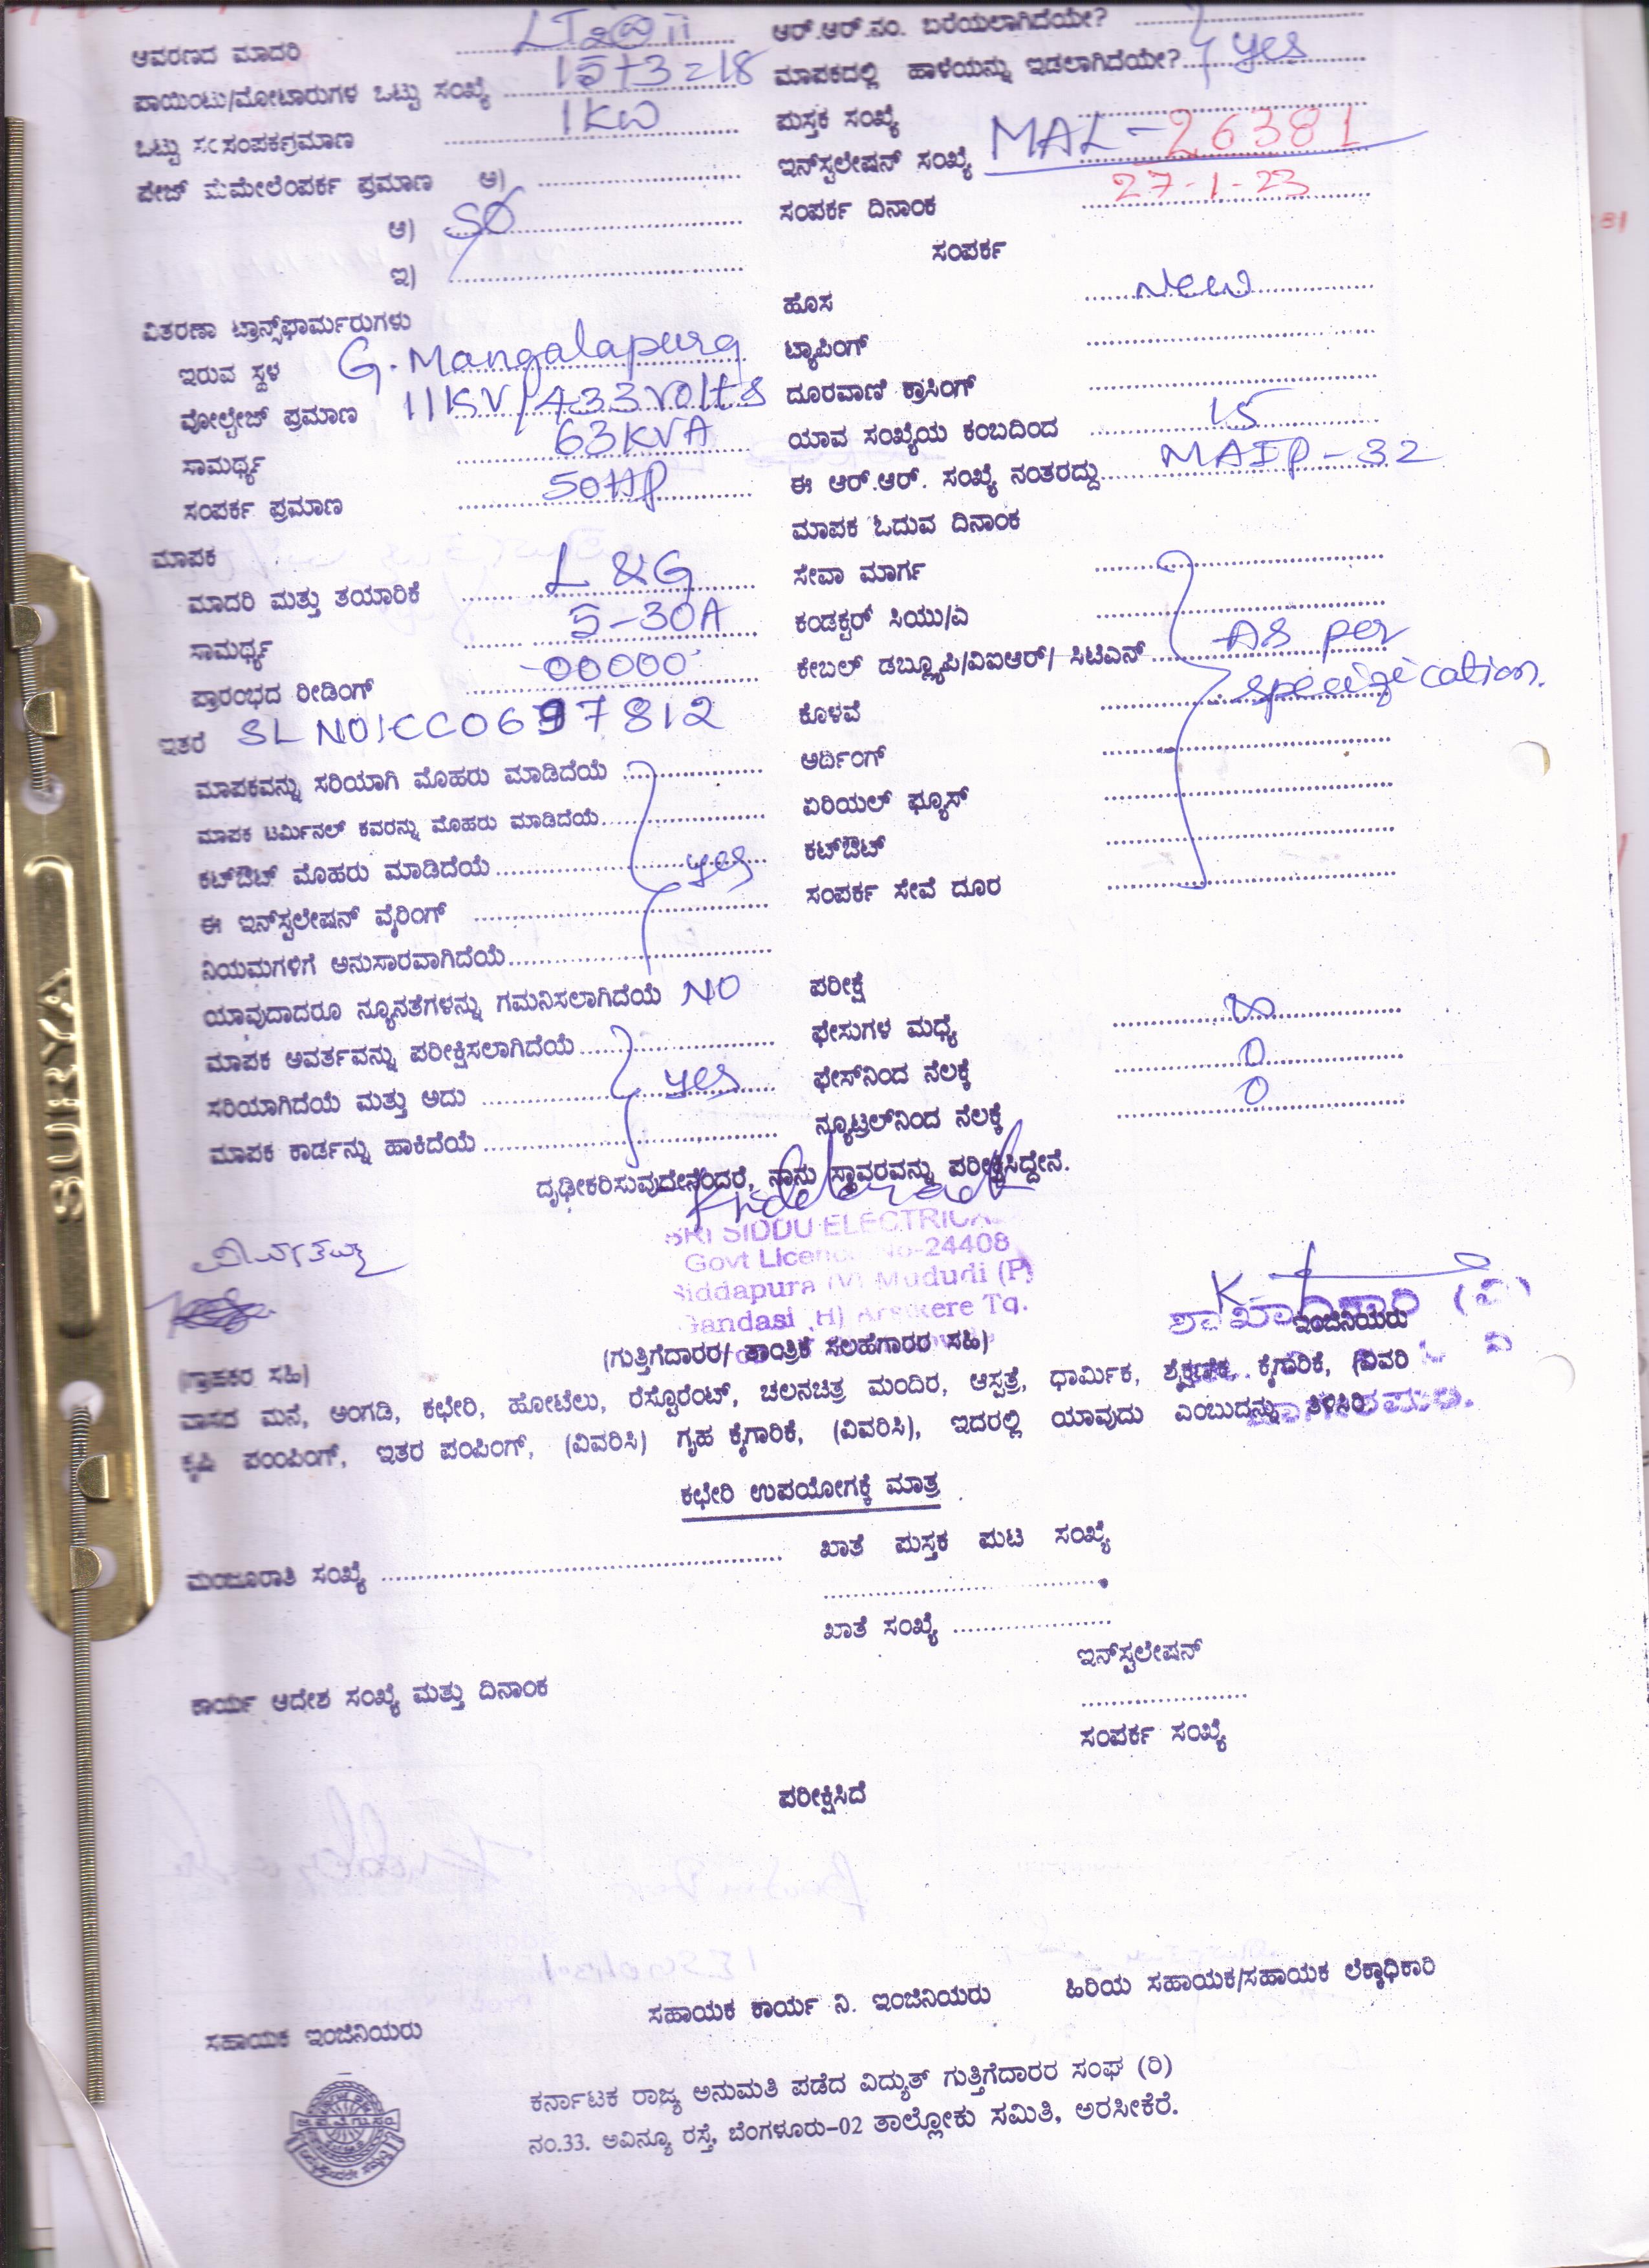 ಆವರಣದ ಮಾದರಿ LT2@ii
ಪಾಯಿಂಟು/ಮೋಟಾರುಗಳ ಒಟ್ಟು ಸಂಖ್ಯೆ 15+3=18
ಒಟ್ಟು 1KW
ಪ್ರಮಾಣ ಅ)
ಆ) SØ
ಇ)
ವಿತರಣಾ ಟ್ರಾನ್ಸ್‌ಫಾರ್ಮರುಗಳು
ಇರುವ ಸ್ಥಳ G. Mangalapura
ವೋಲ್ಟೇಜ್ ಪ್ರಮಾಣ 11KV/433Volts
ಸಾಮರ್ಥ್ಯ 63KVA
ಸಂಪರ್ಕ ಪ್ರಮಾಣ 50HP
ಮಾಪಕ
ಮಾದರಿ ಮತ್ತು ತಯಾರಿಕೆ L&G
ಸಾಮರ್ಥ್ಯ 5-30A
ಪ್ರಾರಂಭದ ರೀಡಿಂಗ್ 00000
ಇತರೆ
ಮಾಪಕವನ್ನು ಸರಿಯಾಗಿ ಮೊಹರು ಮಾಡಿದೆಯೆ
ಮಾಪಕ ಟರ್ಮಿನಲ್ ಕವರನ್ನು ಮೊಹರು ಮಾಡಿದೆಯೆ
ಕಟ್‌ಔಟ್ ಮೊಹರು ಮಾಡಿದೆಯೆ yes
ಈ ಇನ್‌ಸ್ಟಲೇಷನ್ ವೈರಿಂಗ್
ನಿಯಮಗಳಿಗೆ ಅನುಸಾರವಾಗಿದೆಯೆ
ಯಾವುದಾದರೂ ನ್ಯೂನತೆಗಳನ್ನು ಗಮನಿಸಲಾಗಿದೆಯೆ NO
ಮಾಪಕ ಅವರ್ತವನ್ನು ಪರೀಕ್ಷಿಸಲಾಗಿದೆಯೆ
ಸರಿಯಾಗಿದೆಯೆ ಮತ್ತು ಅದು yes
ಮಾಪಕ ಕಾರ್ಡನ್ನು ಹಾಕಿದೆಯೆ
ಆರ್.ಆರ್.ನಂ. ಬರೆಯಲಾಗಿದೆಯೇ?
ಮಾಪಕದಲ್ಲಿ ಹಾಳೆಯನ್ನು ಇಡಲಾಗಿದೆಯೇ? yes
ಪುಸ್ತಕ ಸಂಖ್ಯೆ
ಇನ್‌ಸ್ಟಲೇಷನ್ ಸಂಖ್ಯೆ MAL-26381
ಸಂಪರ್ಕ ದಿನಾಂಕ 27-1-23
ಸಂಪರ್ಕ
ಹೊಸ New
ಟ್ಯಾಪಿಂಗ್
ದೂರವಾಣಿ ಕ್ರಾಸಿಂಗ್
ಯಾವ ಸಂಖ್ಯೆಯ ಕಂಬದಿಂದ 15
ಈ ಆರ್.ಆರ್. ಸಂಖ್ಯೆ ನಂತರದ್ದು MAIP-32
ಮಾಪಕ ಓದುವ ದಿನಾಂಕ
ಸೇವಾ ಮಾರ್ಗ
ಕಂಡಕ್ಟರ್ ಸಿಯು/ಎ
ಕೇಬಲ್ ಡಬ್ಲ್ಯೂಪಿ/ವಿಐಆರ್/ ಸಿಟಿಎಸ್ As per
ಕೊಳವೆ specification.
ಅರ್ಥಿಂಗ್
ಏರಿಯಲ್ ಫ್ಯೂಸ್
ಕಟ್‌ಔಟ್
ಸಂಪರ್ಕ ಸೇವೆ ದೂರ
ಪರೀಕ್ಷೆ
ಫೇಸುಗಳ ಮಧ್ಯೆ ∞
ಫೇಸ್‌ನಿಂದ ನೆಲಕ್ಕೆ 0
ನ್ಯೂಟ್ರಲ್‌ನಿಂದ ನೆಲಕ್ಕೆ 0
ದೃಢೀಕರಿಸುವುದೇನೆಂದರೆ, ನಾನು ಸ್ಥಾವರವನ್ನು ಪರೀಕ್ಷಿಸಿದ್ದೇನೆ.
SRI SIDDU ELECTRICAL
Govt Licence No-24408
Siddapura (V) Mududi (P)
Gandasi (H) Arsikere Tq.
ಇಂಜಿನಿಯರು
(ಗುತ್ತಿಗೆದಾರರ/ ತಾಂತ್ರಿಕ ಸಲಹೆಗಾರರ ಸಹಿ)
(ಗ್ರಾಹಕರ ಸಹಿ)
ವಾಸದ ಮನೆ, ಅಂಗಡಿ, ಕಛೇರಿ, ಹೋಟೆಲು, ರೆಸ್ಟೊರೆಂಟ್, ಚಲನಚಿತ್ರ ಮಂದಿರ, ಆಸ್ಪತ್ರೆ, ಧಾರ್ಮಿಕ, ಶೈಕ್ಷಣಿಕ, ಕೈಗಾರಿಕೆ, (ವಿವರಿ
ಕೃಷಿ ಪಂಪಿಂಗ್, ಇತರ ಪಂಪಿಂಗ್, (ವಿವರಿಸಿ) ಗೃಹ ಕೈಗಾರಿಕೆ, (ವಿವರಿಸಿ), ಇದರಲ್ಲಿ ಯಾವುದು ಎಂಬುದನ್ನು ತಿಳಿಸಿರಿ
ಕಛೇರಿ ಉಪಯೋಗಕ್ಕೆ ಮಾತ್ರ
ಮಂಜೂರಾತಿ ಸಂಖ್ಯೆ
ಖಾತೆ ಪುಸ್ತಕ ಪುಟ ಸಂಖ್ಯೆ
ಖಾತೆ ಸಂಖ್ಯೆ
ಇನ್‌ಸ್ಟಲೇಷನ್
ಕಾರ್ಯ ಆದೇಶ ಸಂಖ್ಯೆ ಮತ್ತು ದಿನಾಂಕ
ಸಂಪರ್ಕ ಸಂಖ್ಯೆ
ಪರೀಕ್ಷಿಸಿದೆ
ಸಹಾಯಕ ಇಂಜಿನಿಯರು ಸಹಾಯಕ ಕಾರ್ಯ ನಿ. ಇಂಜಿನಿಯರು ಹಿರಿಯ ಸಹಾಯಕ/ಸಹಾಯಕ ಲೆಕ್ಕಾಧಿಕಾರಿ
ಕರ್ನಾಟಕ ರಾಜ್ಯ ಅನುಮತಿ ಪಡೆದ ವಿದ್ಯುತ್ ಗುತ್ತಿಗೆದಾರರ ಸಂಘ (ರಿ)
ನಂ.33. ಅವಿನ್ಯೂ ರಸ್ತೆ, ಬೆಂಗಳೂರು-02 ತಾಲ್ಲೋಕು ಸಮಿತಿ, ಅರಸೀಕೆರೆ.
SURYA